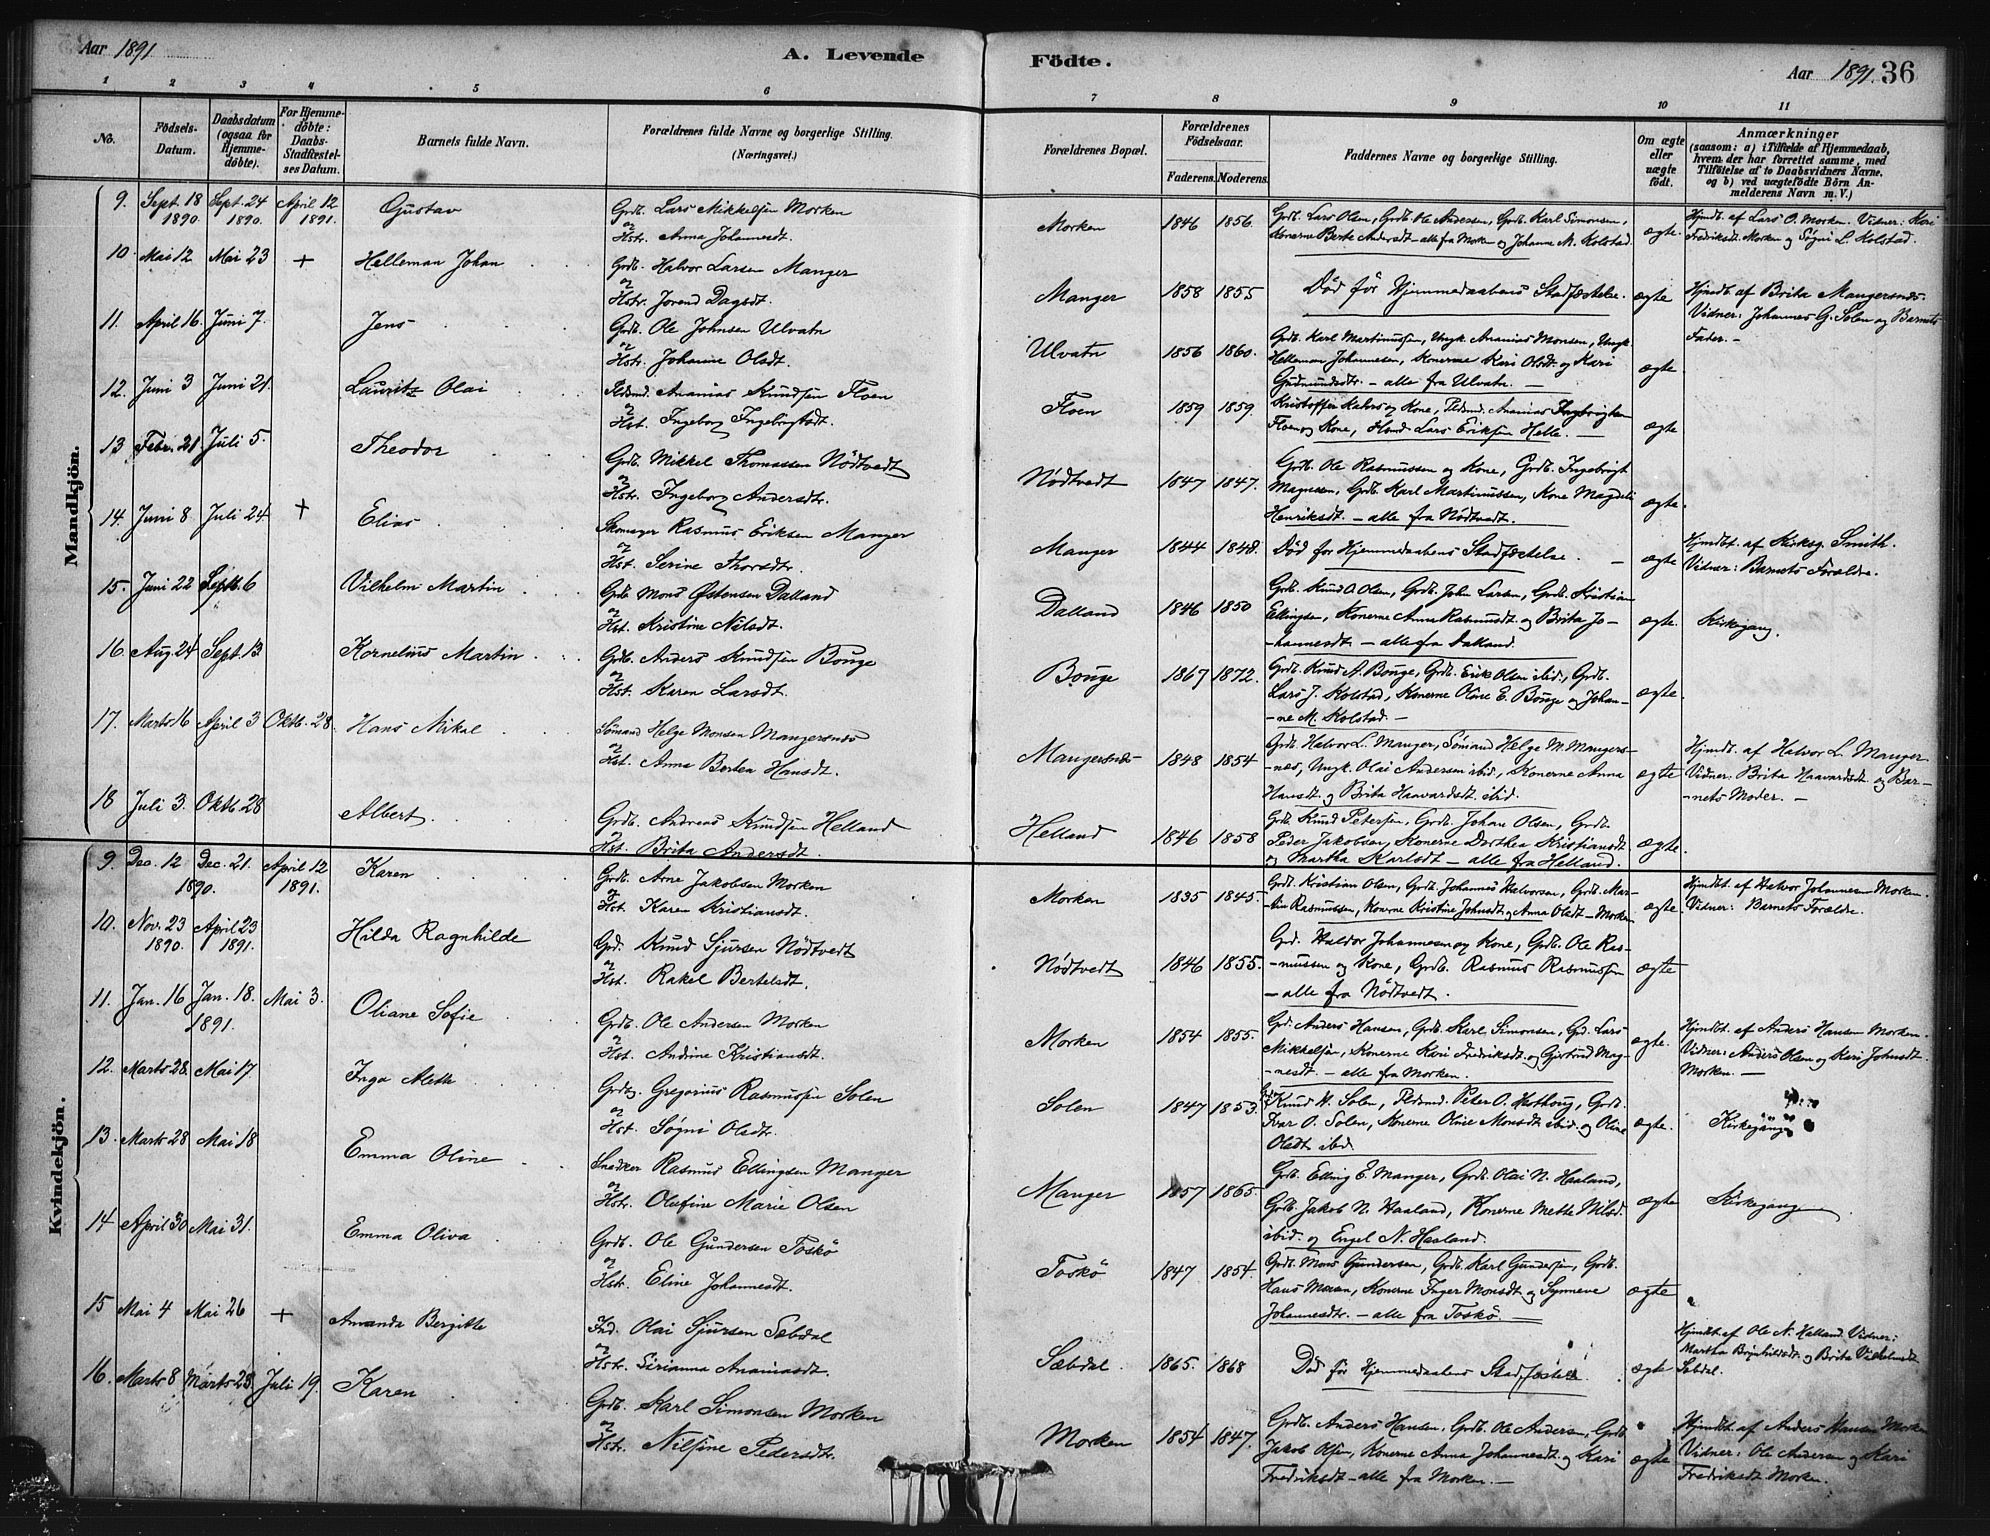 Aar 1891.
A. Levende
Födte.
Aar 1891. 36
1 2 3 4 5 6 7 8 9 10 11
No.
Födsels-Datum.
Daabsdatum (ogsaa for Hjemme-döbte).
For Hjemme-döbte: Daabs-Stadfæstel-ses Datum.
Barnets fulde Navn.
Forældrenes fulde Navne og borgerlige Stilling. (Næringsvei.)
Forældrenes Bopæl.
Forældrenes Födselsaar.
Faderens. Moderens.
Faddernes Navne og borgerlige Stilling.
Om ægte eller uægte födt.
Anmærkninger
(saasom: a) i Tilfælde af Hjemmedaab, hvem der har forrettet samme, med Tilföielse af to Daabsvidners Navne, og b) ved uægtefödte Börn An-melderens Navn m. V.)
Mandkjön.
9. Sept. 18 1890. Sept. 24 1890. April 12 1891. Gustav
Grdb. Lars Mikkelsen Morken
og
Hstr. Anna Johannesdt.
Morken 1846 1856.
Grdb. Lars Olsen, Grdb. Ole Andersen, Grdb. Karl Simonsen,
Konerne Berte Andersdt - alle fra Morken og Johanne M. Kolstad.
ægte.
Hjmdt. af Lars O. Morken. Vidner: Kari
Fredriksdt. Morken og Søgni L. Kolstad.
10. Mai 12 Mai 23 + Helleman Johan
Grdb. Halvor Larsen Manger
og
Hstr. Jorend Dagsdt.
Manger 1858 1855
Død før Hjemmedaabens Stadfæstelse.
ægte
Hjmdt. af Brita Mangersnes.
Vidner: Johannes G. Solen og Barnets
Fader. -
11. April 16. Juni 7. Jens
Grdb. Ole Johnsen Ulvatn
og
Hstr. Johanne Olsdt.
Ulvatn 1856 1860.
Grdb. Karl Martinussen, Ungk. Ananias Monsen, Ungk.
Helleman Johannesen, Konerne Kari Olsdt. og Kari
Gudmundsdtr. - alle fra Ulvatn. -
ægte.
12. Juni 3 Juni 21. Lauritz Olai
Pldsmd. Ananias Knudsen Floen
og
Hst. Ingeborg Ingebrigtsdt.
Floen 1859 1859.
Floen og Kone, Lars Eriksen Helle. -
ægte
13 Febr. 21. Juli 5. Theodor
Grdb. Mikkel Thomassen Nödtvedt
og
Hstr. Ingeborg Andersdtr.
Nödtvedt 1847 1847.
Grdb. Ole Rasmussen og Kone, Grdb. Ingebrigt
Magnesen, Grdb. Karl Martinussen, Kone Magdeli
Henriksdt. - alle fra Nödtvedt.
ægte.
14. Juni 8 Juli 24 + Elias
Skomager Rasmus Eriksen Manger
og
Hst. Serine Thorsdtr.
Manger 1844 1848.
Død før Hjemmedaabens Stadfæstelse. -
ægte
Hjmdbt. af Kirksg. Smith.
Vidner: Barnets Forældre.
15. Juni 22 Septb. 6 Vilhelm Martin
Grdb Mons Østensen Dalland
og
Hst. Kristine Nilsdt.
Dalland 1846 1850
Grdb. Knud O. Olsen, Grdb. John Larsen, Grdb. Kristian
Ellingsen, Konerne Anna Rasmusdt. og Brita Jo-
-hannesdt - alle fra Dalland.
ægte.
Kirkegang.
16. Aug. 24 Sept. 13. Kornelius Martin
Grdb. Anders Knudsen Bouge
og
Hst. Karen Larsdt.
Bouge 1867 1872.
Grdb. Knud A. Bouge, Grdb. Erik Olsen ibid., Grdb.
Lars J. Kolstad, Konerne Oline E. Bouge og Johan-
-ne M. Kolstad. -
ægte
17. Marts 16 April 3 Oktb. 28. Hans Mikal
Sömand Helge Monsen Mangersnes
og
Hst. Anna Bertea Hansdt.
Mangersnes 1848 1854
Grdb Halvor L. Manger, Sömand Helge M. Mangers-
-nes, Ungk. Olai Andersen ibid., Konerne Anna
Hansdt. og Brita Haavardsdt. ibid.
ægte
Hjmdt. af Halvor L. Manger
Vidner: Brita Haavardsdt. og Bar-
-nets Moder. -
18 Juli 3. Oktb. 28 Albert
Grdb. Andreas Knudsen Helland
og
Hst. Brita Andersdt.
Helland 1846 1858
Grdb. Knud Petersen, Grdb. Johan Olsen, Grdb.
Peder Jakobsen, Konerne Dorthea Kristiansdt
og Martha Karlsdt - alle fra Helland.
ægte.
Kvindekjön.
9. Dec. 12 1890. Dec. 21. April 12 1891. Karen
Grdb. Arne Jakobsen Morken
og
Hst. Karen Kristiansdt.
Morken 1835 1845.
Grdb. Kristian Olsen, Grdb. Johannes Halvorsen, Grdb. Mar-
-tin Rasmussen, Konerne Kristine Johnsdt. og Anna Olsdt - Morken
ægte.
Hjmdbt. af Halvor Johannesen Morken.
Vidner: Barnets Forældre.
10. Nov. 23 1890. April 23 1891. Hilda Ragnhilde
Grd. Knud Sjursen Nödtvedt
og
Hst. Rakel Bertelsdt.
Nödtvedt 1846 1855.
Grd. Haldor Johannesen og Kone, Grdb. Ole Ras-
-mussen og Kone, Grdb. Rasmus Rasmussen
- alle fra Nödtvedt.
ægte
11. Jan. 16 Jan. 18. 1891. Mai 3. Oliane Sofie
Grdb. Ole Andersen Morken
og
Hst. Andrine Kristiansdt.
Morken 1854 1855.
Grd. Anders Hansen, Grdb. Karl Simonsen, Grd. Lars
Mikkelsen, Konerne Kari Fredriksdt. og Gjertrud Mag-
-nesdt. - alle fra Morken.
ægte.
Hjmdbt. af Anders Hansen Morken.
Vidner: Anders Olsen og Kari Johnsdt.
Morken. -
12. Marts 28. Mai 17. Inga Alette
Grdbg. Gregorius Rasmussen Solen
og
Hst. Søgni Olsdtr.
Solen 1847 1853.
Knud N. Solen, Pldsmd. Peter O. Hosthoug, Grdb.
Ivar O. Solen, Konerne Oline Monsdt ibid. og Oline
Olsdt ibid.
ægte.
Kirkegang
13. Marts 28 Mai 18 Emma Oline
Snedker Rasmus Ellingsen Manger
og
Hstr. Olufine Marie Olsen
Manger 1857 1865.
Grdb. Elling E. Manger, Grdb. Olai N. Haaland,
Grdb Jakob N. Haaland, Konerne Mette Nilsd.
ibid. og Engel N. Haaland.
ægte
Kirkegang
14 April 30 Mai 31. Emma Oliva
Grdb. Ole Gundersen Toskö
og
Hst. Eline Johannesdt.
Toskö 1847 1854.
Grdb. Mons Gundersen, Grdb. Karl Gundersen, Grdb.
Hans Monsen, Konerne Inger Monsdt. og Synneve
Johannesdtr. - alle fra Toskö. -
ægte
15 Mai 4 Mai 26 + Amanda Bergitte
Ind. Olai Sjursen Sæbdal
og
Hstr. Sirianna Ananiasdt.
Sæbdal. 1865. 1868
Död før Hjemmedaabens Stadfæstelse.
ægte
Hjmdt. af Ole N. Helland. Vidner:
Martha Brynhildsdt. og Brita Vilhelmsdt
Sæbdal.
16. Marts 8 Marts 28. Juli 19. Karen
Grdb. Karl Simonsen Morken
og
Hstr. Nilsine Pedersdtr.
Morken 1854 1847.
Grdb. Anders Hansen, Grdb. Ole Andersen, Grdb.
Jakob Olsen, Konerne Anna Johannesdt. og Kari
Fredriksdt - alle fra Morken. -
ægte
Hjmdbt. af Anders Hansen Morken
Vidner: Ole Andersen og Kari
Fredriksdt Morken.